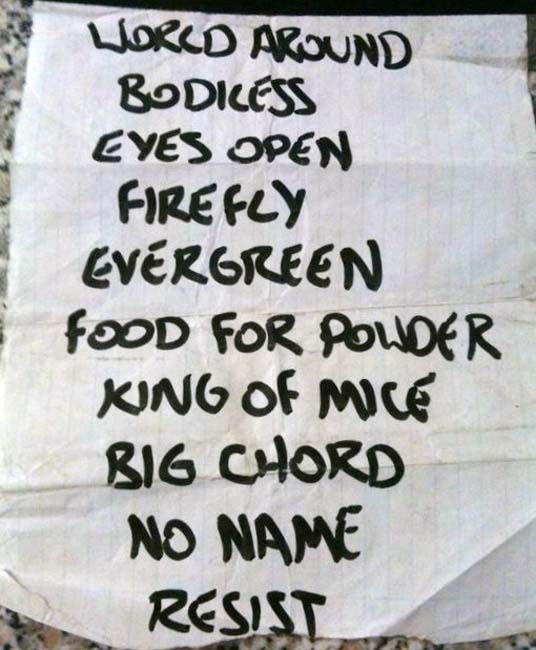 WORLD AROUND
BODILESS
EYES OPEN
FIREFLY
EVERGREEN
FOOD FOR POWDER
KING OF MICE
BIG CHORD
NO NAME
RESIST